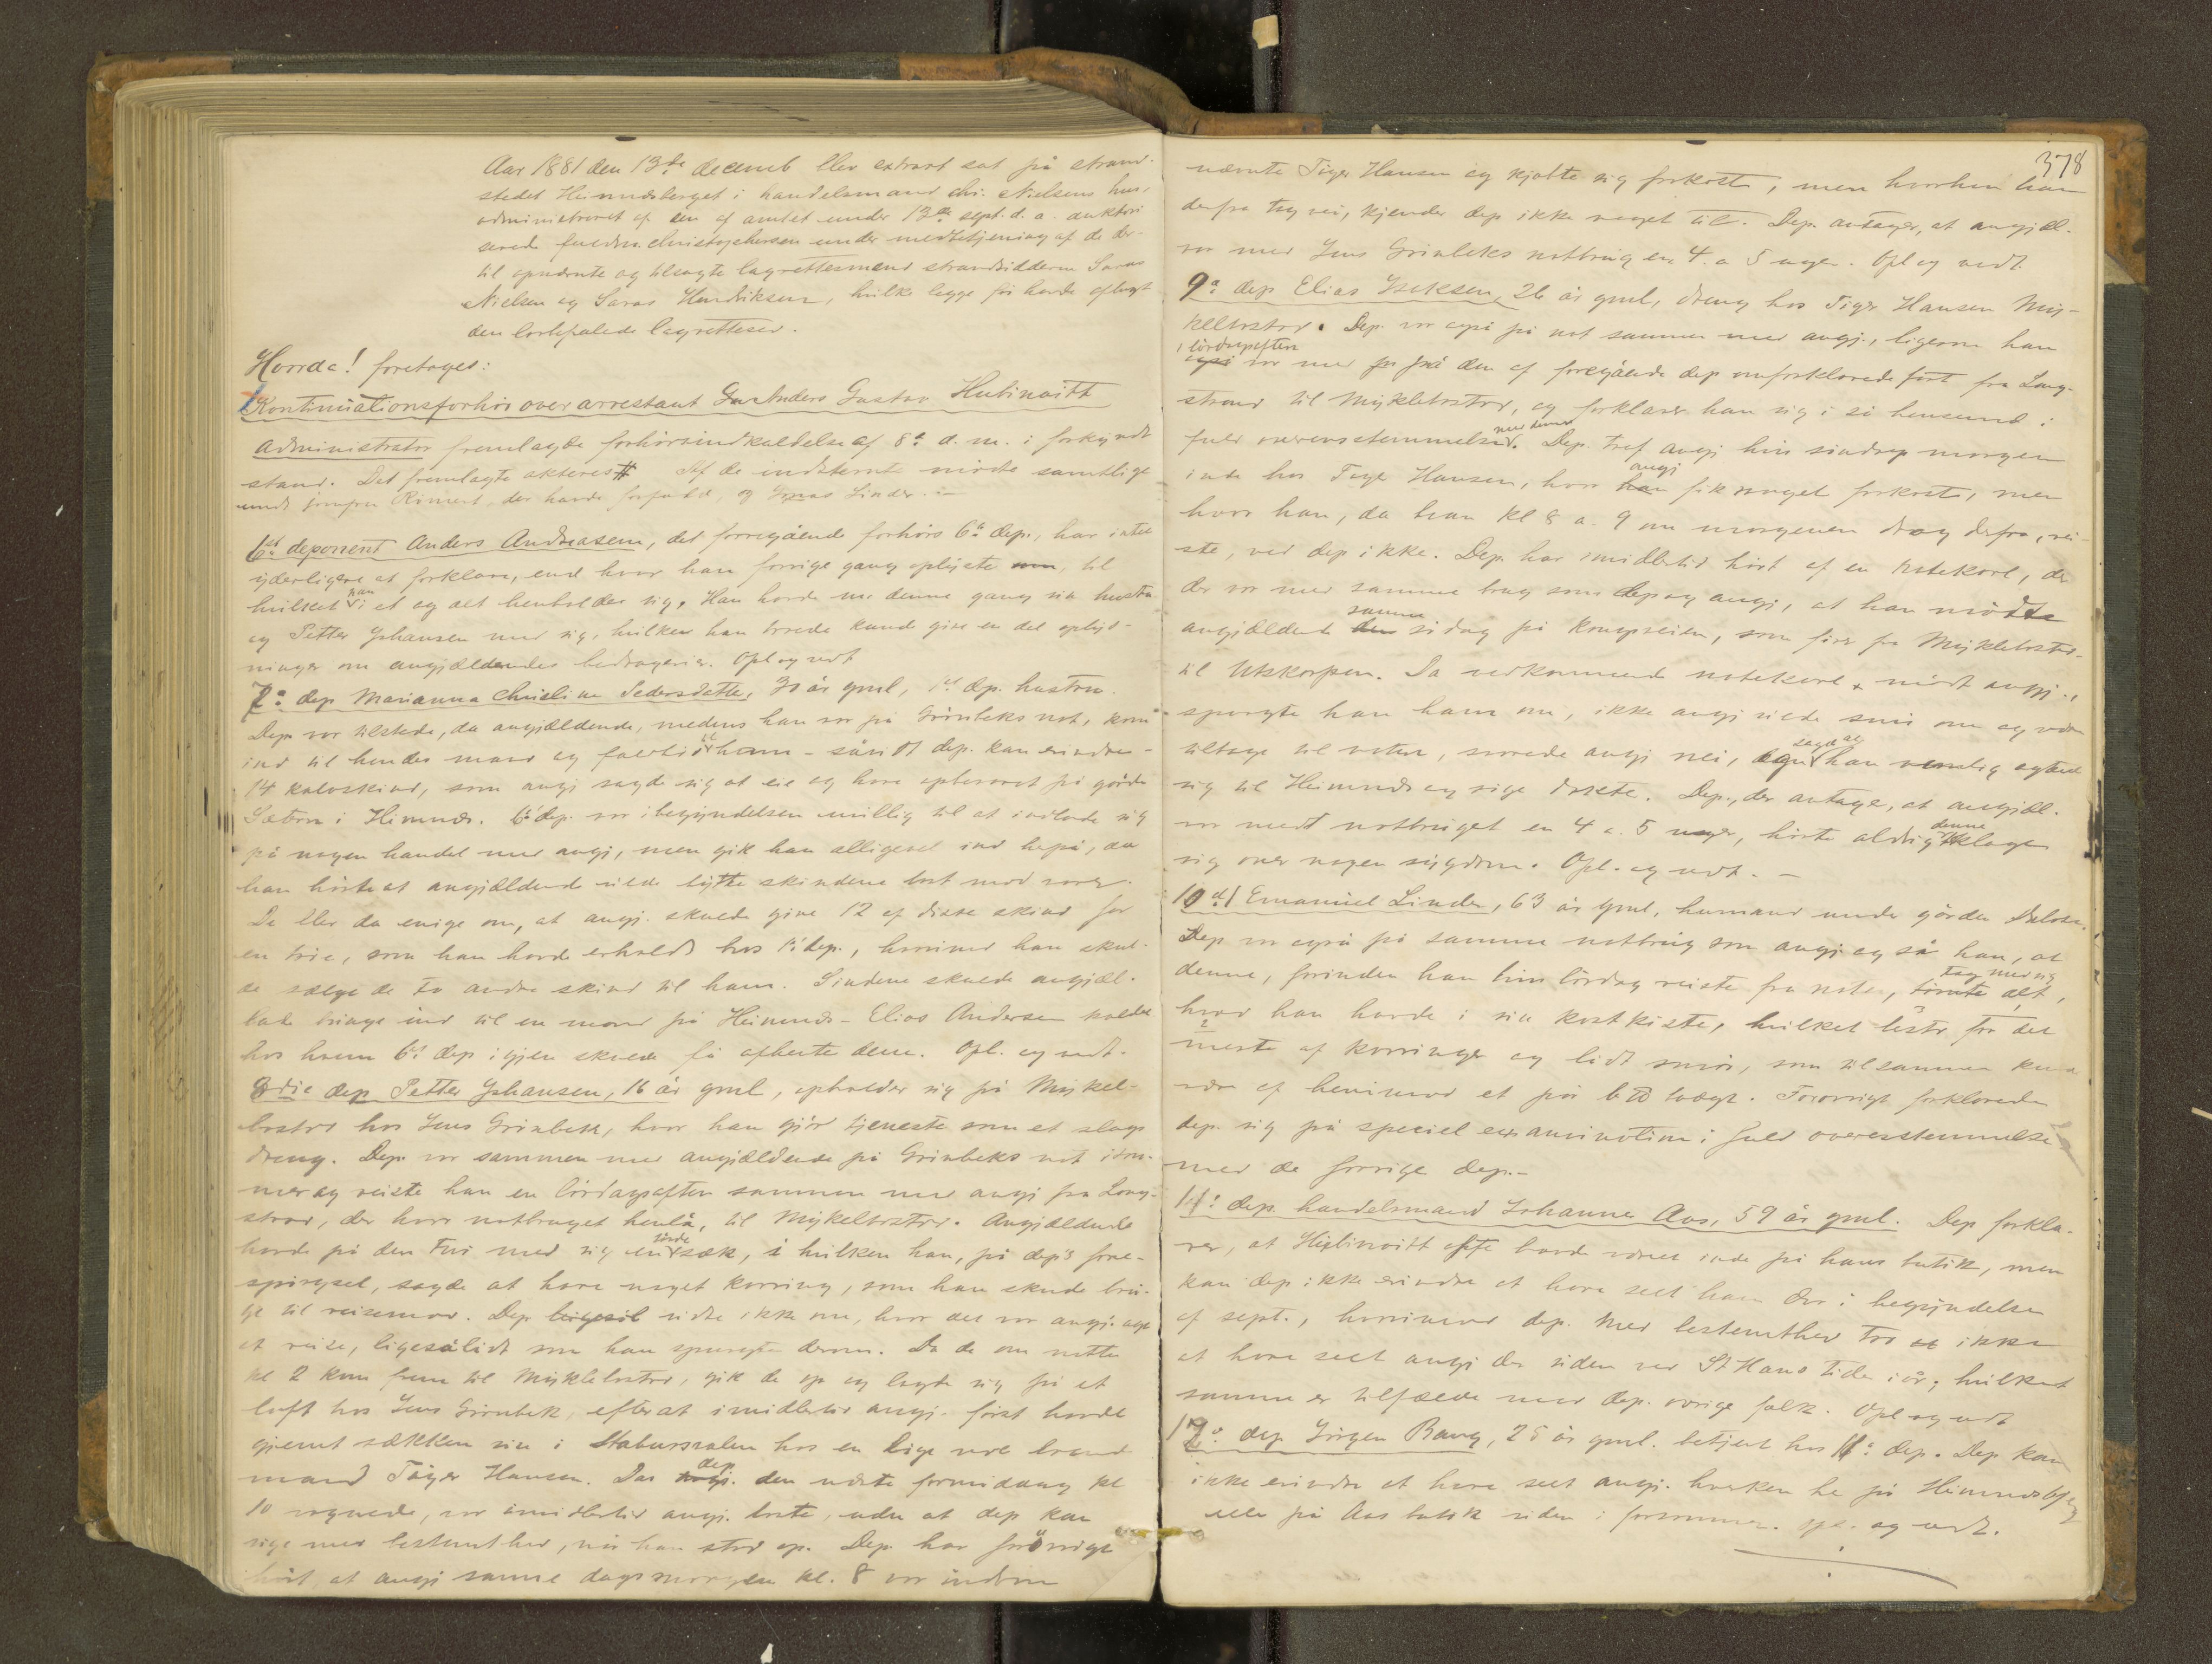 Aar 1881 den 13de decemb blev extraret sat på strand-
stedet Heimndsberget i handelsmand Chr. Nielsens hus,
administreret af den af amtet under 13de sept. d. a. auktori
serede fuldm. Christophersen under medbetjening af de der-
til opnævnte og tilsagte lagrettesmænd strandsidderne Lavas
Nielsen og Lavas Hendriksen, hvilke begge før havde aflagt
den lovbefalede lagretteseed.
Hvorda! foretoges:
Kontinuationsforhör over arrestant Anders Gustav Hubinoitt
Administrator fremlagde forhörsindkaldelse af 8de d. m. i forkyndt
stand. Det fremlagte akteres # Af de indstevnte mödte samtlige
undt. jomfru Rinnert, der havde forfald, og Jonas Linder. -
6te deponent Anders Andreasen, det forregående forhörs 6te dep., har intet
yderligere at forklare, end hvor han forrige gang oplyste, til
hvilket han i et og alt henholder sig. Han havde nu denne gang sin hustru
og Petter Johansen med sig, hvilken han troede kunde give en del oplys-
ninger om angjældendes bedragerier. Opl og vedt
7de dep Marianna Christine Pedersdatter, 30 år gml, 1st dep. hustru.
Dep. var tilstede, da angjældende, medens han var på Grönbeks not, kom
ind til hendes mand og falböd til ham - såvidt dep. kan erindre -
14 kalvskind, som angj sagde sig at eie og have opbevaret på gården
Sætren i Heimnds. 6te dep. var i begyndelsen uvillig til at indlade sig
på nogen handel med angj, men gik han alligevel ind herpå, da
han hörte at angjældende vilde bytte skindene bort mod varer.
De blev da enige om, at angj. skulde give 12 af disse skind for
en tröie, som han havde erholdt hos 1ste dep., hvorimod han skul-
de sælge de to andre skind til ham. Skindene skulde angjæl-
bringe ind til en mand på Heimnds - Elias Andersen kaldet
hos hvem 6te dep igjen skulde få afhente dem. Opl. og vedt.
8die dep Petter Johansen, 16 år gml, opholder sig på Mykel-
bostad hos Jens Grönbek, hvor han gjör tjeneste som et slags
dreng. Dep. var sammen med angjældende på Grönbeks not i som-
mer og reiste han en lördagsaften sammen med angj fra Lang-
strand, der hvor notbruget henlå, til Mykelbostad. Angjældende
havde på den tur med sig en sæk, i hvilken han, på dep's fore-
spörgsel, sagde at have noget korring, som han skulde bru-
ge til reisemad. Dep. vidste ikke om, hvor det var angj. agte
at reise, ligesålidt som han spurgte derom. Da de om natten
kl 2 kom frem til Myklebostad, gik de op og lagde sig på et
loft hos Jens Grönbek, efterat imidlertid angj. först havde
gjemt sækken sin i Stabursvalen hos en lige ved boende
mand Töger Hansen. Da dep. den næste formiddag kl
10 vognede, var imidlertid angj. borte, uden at dep kan
sige med bestemthed, når han stod op. Dep. har forövrigt
hört, at angj samme dags morgen kl. 8 var indom

378
nævnte Töger Hansen og kjöbte sig frokost, men hvorhen han
derfra tog vei, kjender dep ikke noget til. Dep. antager, at angjæl-
var med Jens Grönbeks notbrug en 4 a 5 uger. Opl og vedt.
9de dep Elias Isaksen, 26 år gml, dreng hos Töger Hansen Myk-
kelbostad. Dep. var også på not sammen med angj., ligesom han
lördagsaften
var med på den af foregående dep omforklarede fart fra Lang-
strand til Myklebostad, og forklarer han sig i så henseende i
fuld overensstemmelse med denne. Dep. traf angj hin söndag morgen
inde hos Töger Hansen, hvor angj fik noget frokost, men
hvor han, da han kl 8 a 9 om morgenen drog derfra, rei-
ste, ved dep ikke. Dep. har imidlertid hört af en notekarl, der
der var med samme brug som dep og angj, at han mödte
angjældende samme sidag på Kongeveien, som förer fra Myklebostad
til Utskarpen. Da vedkommende notekarl mödt angj.,
spurgte han ham om, ikke angj vilde snu om og være
tilbage til noten, svarede angj nei, sagde at han agtede
sig til Heimnds og söge dokte. Dep., der antager, at angjæl.
var med notbruget en 4 a 5 uger, hörte aldrig denne klage
sig over nogen sygdom. Opl. og vedt. -
10de d Emanuel Linder, 63 år gml, husmand under gården Dalosen.
Dep var også på samme notbrug som angj og så han, at
denne, forinden han hin lördag reiste fra noten, tog med sig alt,
hvad han havde i sin kostkiste, hvilket bestod for det
meste af kavringer og lidt smör, som tilsammen kunde
være af henimod et par b ℔ vægt. Forövrigt forklarede
dep. sig på speciel examination i fuld overensstemmelse
med de forrige dep. -
11te dep. handelsmand Johannes Aas, 59 år gml. Dep forkla-
rer, at Hubinoitt ofte havde været inde på hans butik, men
kan dep ikke erindre at have seet ham der i begyndelsen
af sept., hvorimod dep. med bestemthed tör ikke
at have seet angj der siden ved St Hans tider i år; hvilket
samme er tilfælde med dep. övrige folk. Opl og vedt
12te dep Jörgen Bang, 25 år gml. betjent hos 11te dep. Dep kan
ikke erindre at have seet angj. hverken her på Heimndsbjerg
eller på Aas butik siden i forsommer. Opl. og vedt.